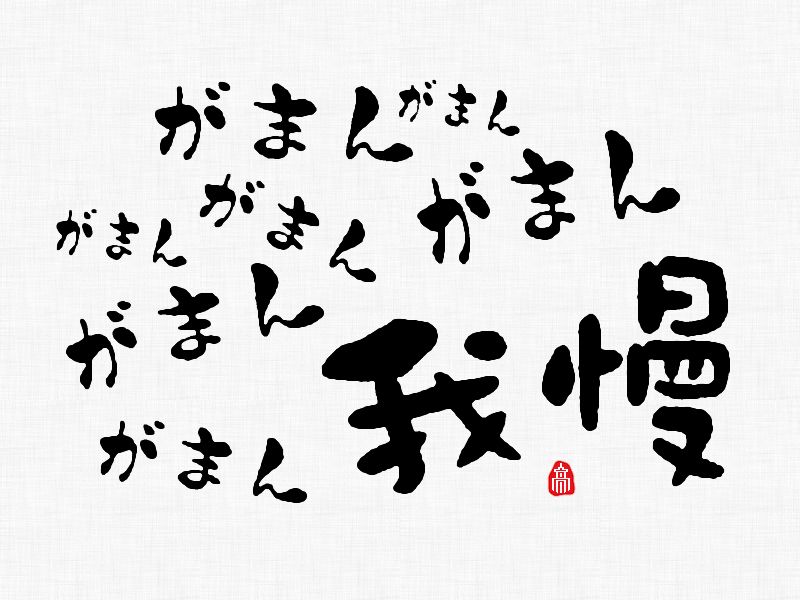 がまん
がまん
がまん
がまん
がまん
がまん
がまん
我慢
高